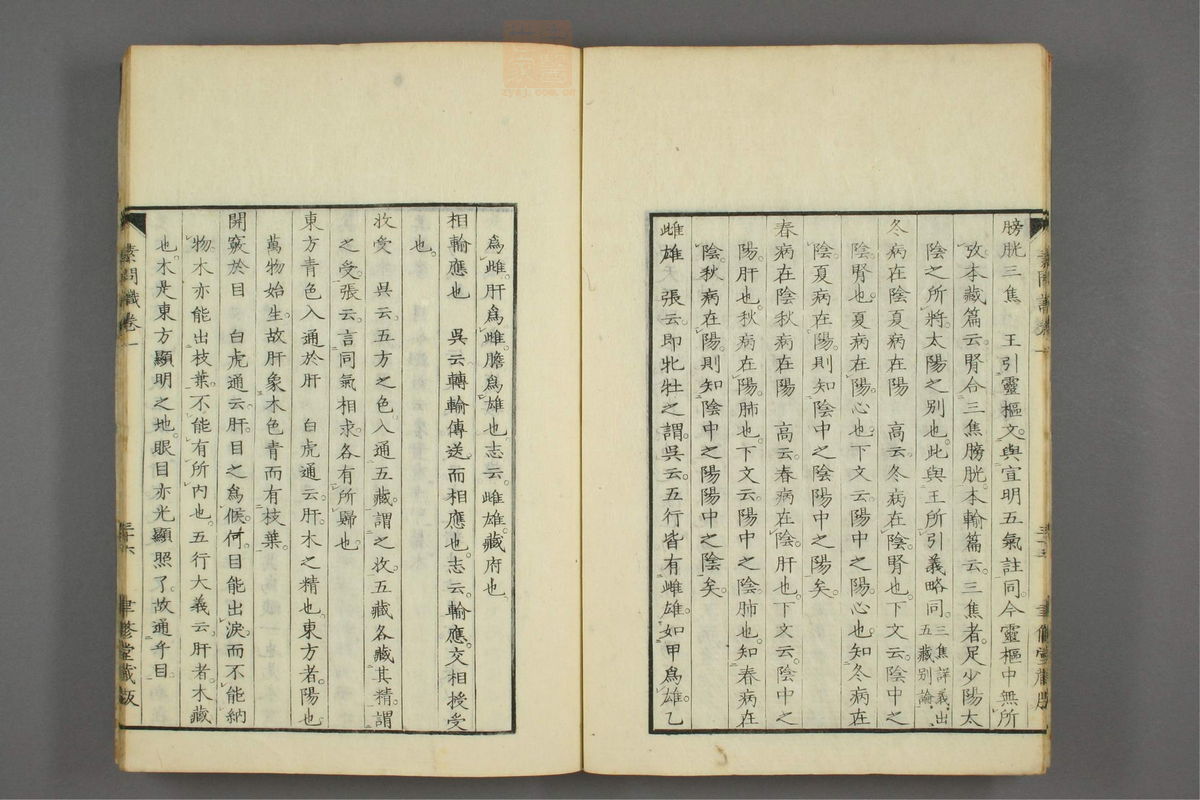 膀胱三焦　王引靈樞文與宣明五氣註同今靈樞中無所
攷本藏篇云腎合三焦膀胱本輸篇云三焦者足少陽太
陰之所將太陽之別也此與王所引義略同三焦詳義出五藏別論
冬病在陰夏病在陽　高云冬病在陰腎也下文云陰中之
陰腎也夏病在陽心也下文云陽中之陽心也知冬病在
陰夏病在陽則知陰中之陰陽中之陽矣
春病在陰秋病在陽　高云春病在陰肝也下文云陰中之
陽肝也秋病在陽肺也下文云陽中之陰肺也知春病在
陰秋病在陽則知陰中之陽陽中之陰矣
雌雄　張云即牝牡之謂吳云五行皆有雌雄如甲為雄乙
為雌肝為雌膽為雄也志云雌雄藏府也
相輸應也　吳云轉輸傳送而相應也志云輸應交相授受
也
收受　吳云五方之色入通五藏謂之收五藏各藏其精謂
之受張云言同氣相求各有所歸也
東方青色入通於肝　白虎通云肝木之精也東方者陽也
萬物始生故肝象木色青而有枝葉
開竅於目　白虎通云肝目之為候何目能出淚而不能納
物木亦能出枝葉不能有所內也五行大義云肝者木藏
也木是東方顯明之地眼目亦光顯照了故通乎目
素問識卷一
三十六
聿修堂藏版